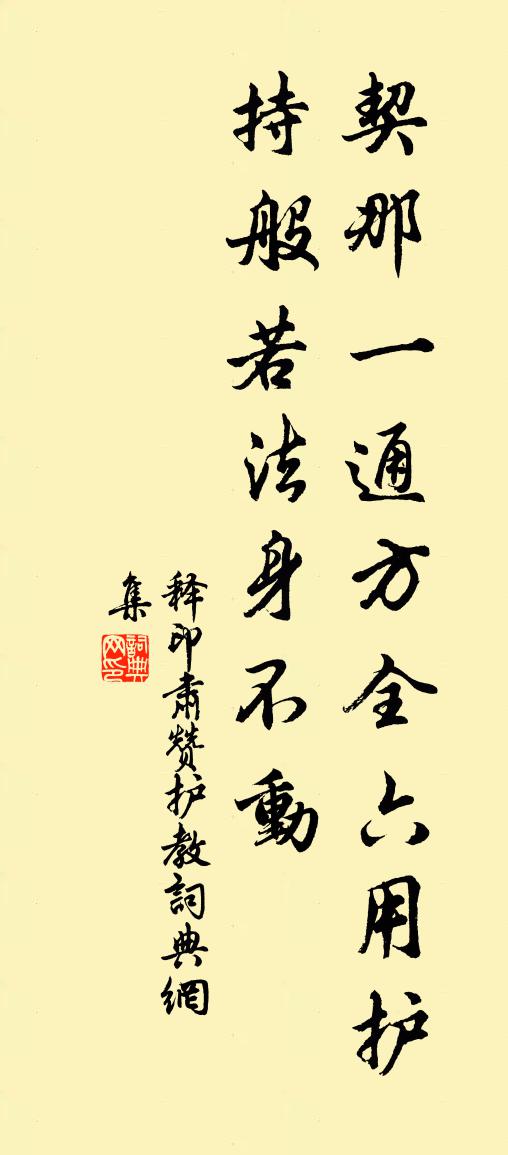 契那一通方全六用护
持般若法身不動
释印肃赞护教詞典網
集
詞典
网印